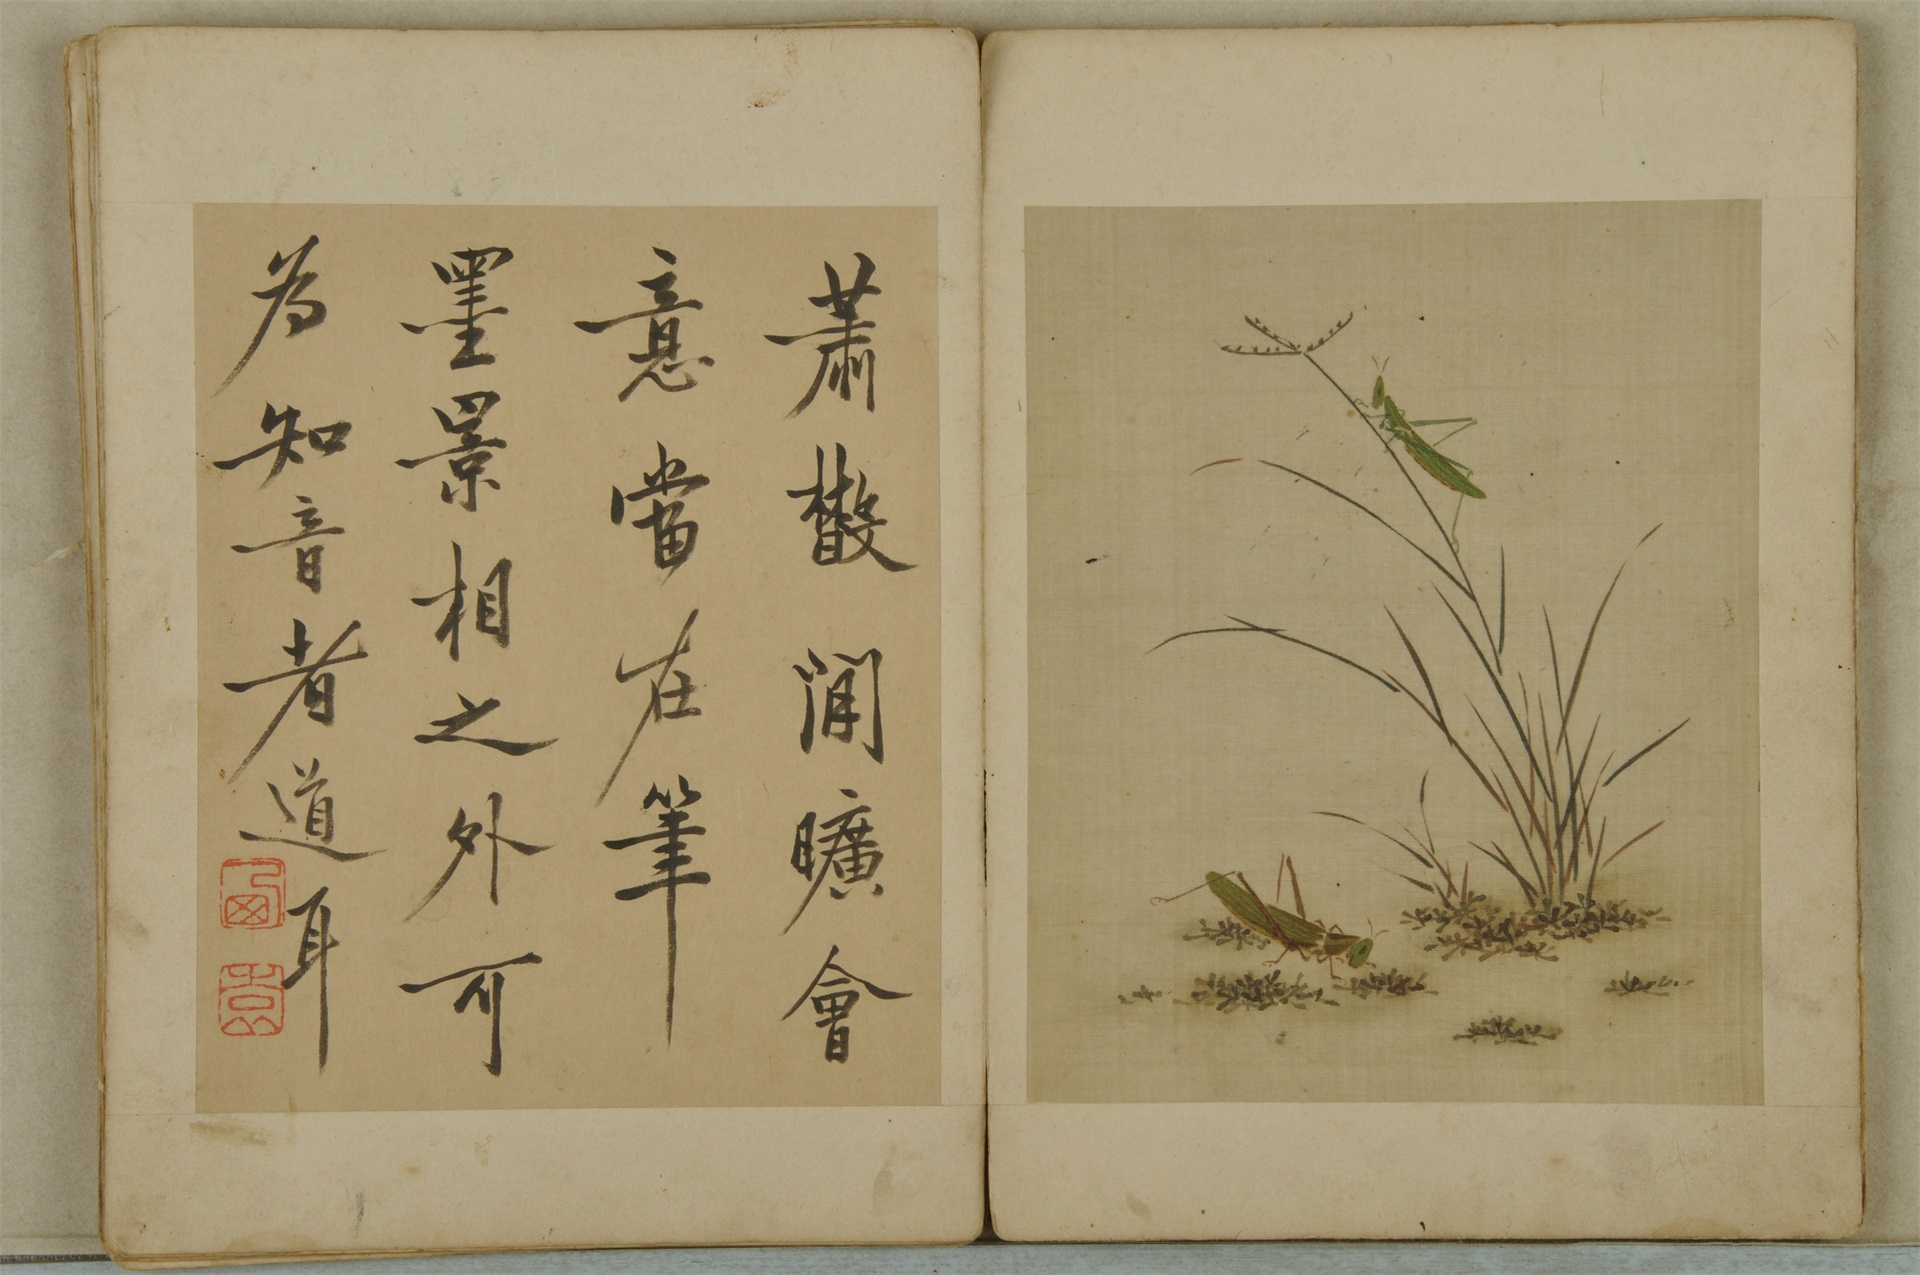 蕭散閒曠會
意當在筆
墨景相之外可
為知音者道耳